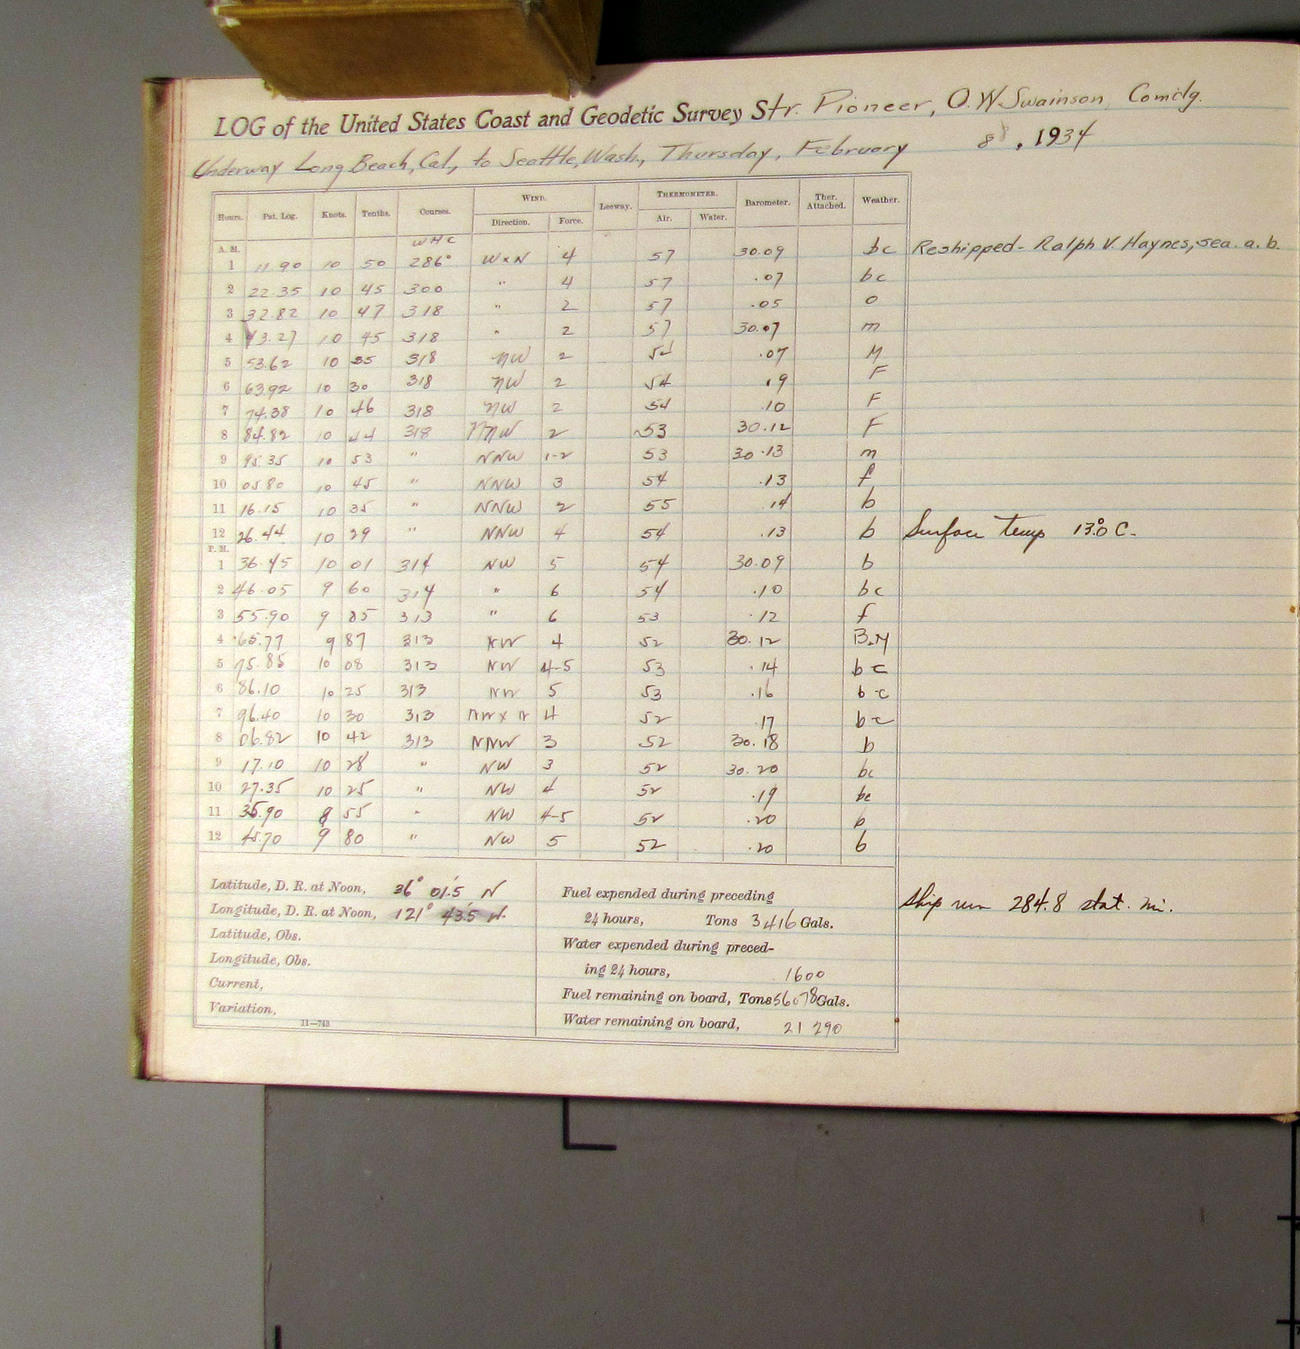 LOG of the United States Coast and Geodetic Survey Str. Pioneer, O. W. Swainson, Comdg.
Underway Long Beach, Cal., to Seattle, Wash., Thursday, February 8, 1934
Hours. Pat. Log. Knots. Tenths. Courses. WIND. Direction. Force. Leeway. THERMOMETER. Air. Water. Barometer. Ther. Attached. Weather.
A. M. WHC
1 11.90 10 50 286° WxN 4 57 30.09 bc Reshipped - Ralph V. Haynes, sea. a. b.
2 22.35 10 45 300 " 4 57 .07 bc
3 32.82 10 47 318 " 2 57 .05 o
4 43.27 10 45 318 " 2 57 30.07 m
5 53.62 10 35 318 NW 2 54 .07 M
6 63.92 10 30 318 NW 2 54 .9 F
7 74.38 10 46 318 NW 2 54 .10 F
8 84.82 10 44 318 NNW 2 53 30.12 F
9 95.35 10 53 " NNW 1-2 53 30.13 m
10 05.80 10 45 " NNW 3 54 .13 f
11 16.15 10 35 " NNW 2 55 .14 b
12 26.44 10 29 " NNW 4 54 .13 b Surface temp 13.0° C.
P. M.
1 36.45 10 01 314 NW 5 54 30.09 b
2 46.05 9 60 314 " 6 54 .10 bc
3 55.90 9 85 313 " 6 53 .12 f
4 65.77 9 87 313 NW 4 52 30.12 B.M
5 75.85 10 08 313 NW 4-5 53 .14 bc
6 86.10 10 25 313 NW 5 53 .16 b-c
7 96.40 10 30 313 NWxN 4 52 .17 bc
8 06.82 10 42 313 NNW 3 52 30.18 b
9 17.10 10 28 " NW 3 52 30.20 bc
10 27.35 10 25 " NW 4 52 .19 bc
11 35.90 8 55 " NW 4-5 52 .20 b
12 45.70 9 80 " NW 5 52 .20 b
Latitude, D. R. at Noon, 36° 01.5' N
Longitude, D. R. at Noon, 121° 43.5' W.
Latitude, Obs.
Longitude, Obs.
Current,
Variation,
11—743
Fuel expended during preceding
24 hours, Tons 3416 Gals.
Water expended during preced-
ing 24 hours, 1600
Fuel remaining on board, Tons 56078 Gals.
Water remaining on board, 21 290
Ship run 284.8 stat. mi.